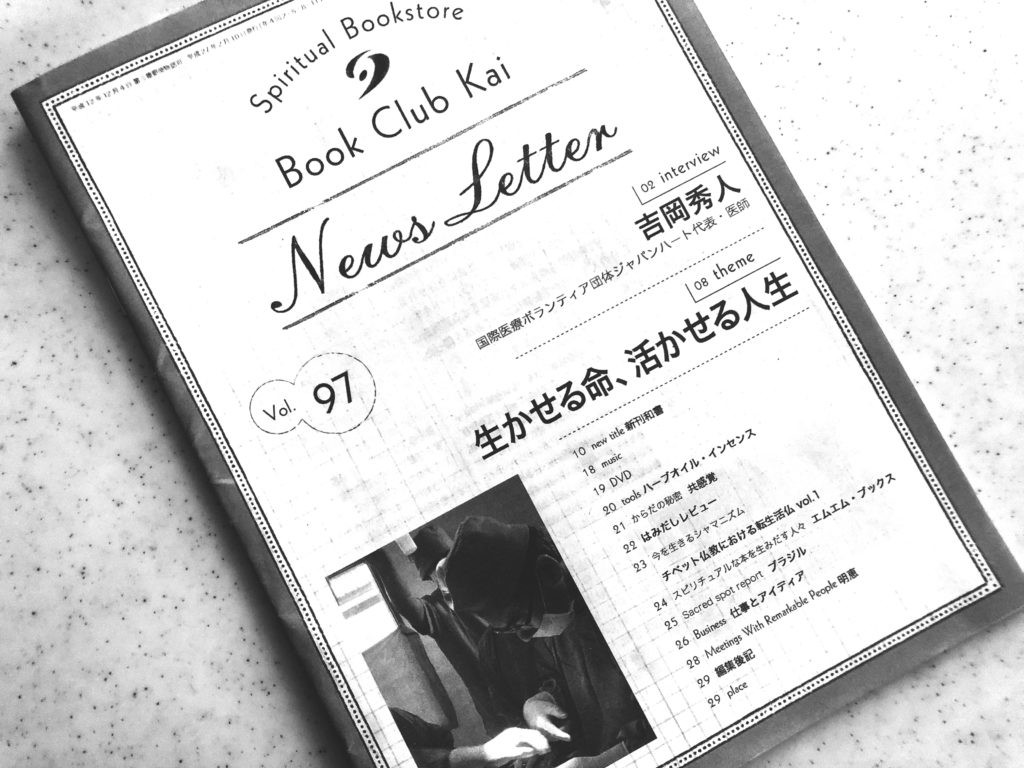 Spiritual Bookstore
Book Club Kai
News Letter
02 interview
吉岡秀人
国際医療ボランティア団体ジャパンハート代表・医師
08 theme
生かせる命、活かせる人生
Vol. 97
10 new title 新刊和書
18 music
19 DVD
20 tools ハーブオイル・インセンス
21 からだの秘密 共感覚
22 はみだしレビュー
23 今を生きるシャマニズム
チベット仏教における転生活仏 vol.1
24 スピリチュアルな本を生みだす人々 エムエム・ブックス
25 Sacred spot report ブラジル
26 Business 仕事とアイディア
28 Meetings With Remarkable People 明恵
29 編集後記
29 place